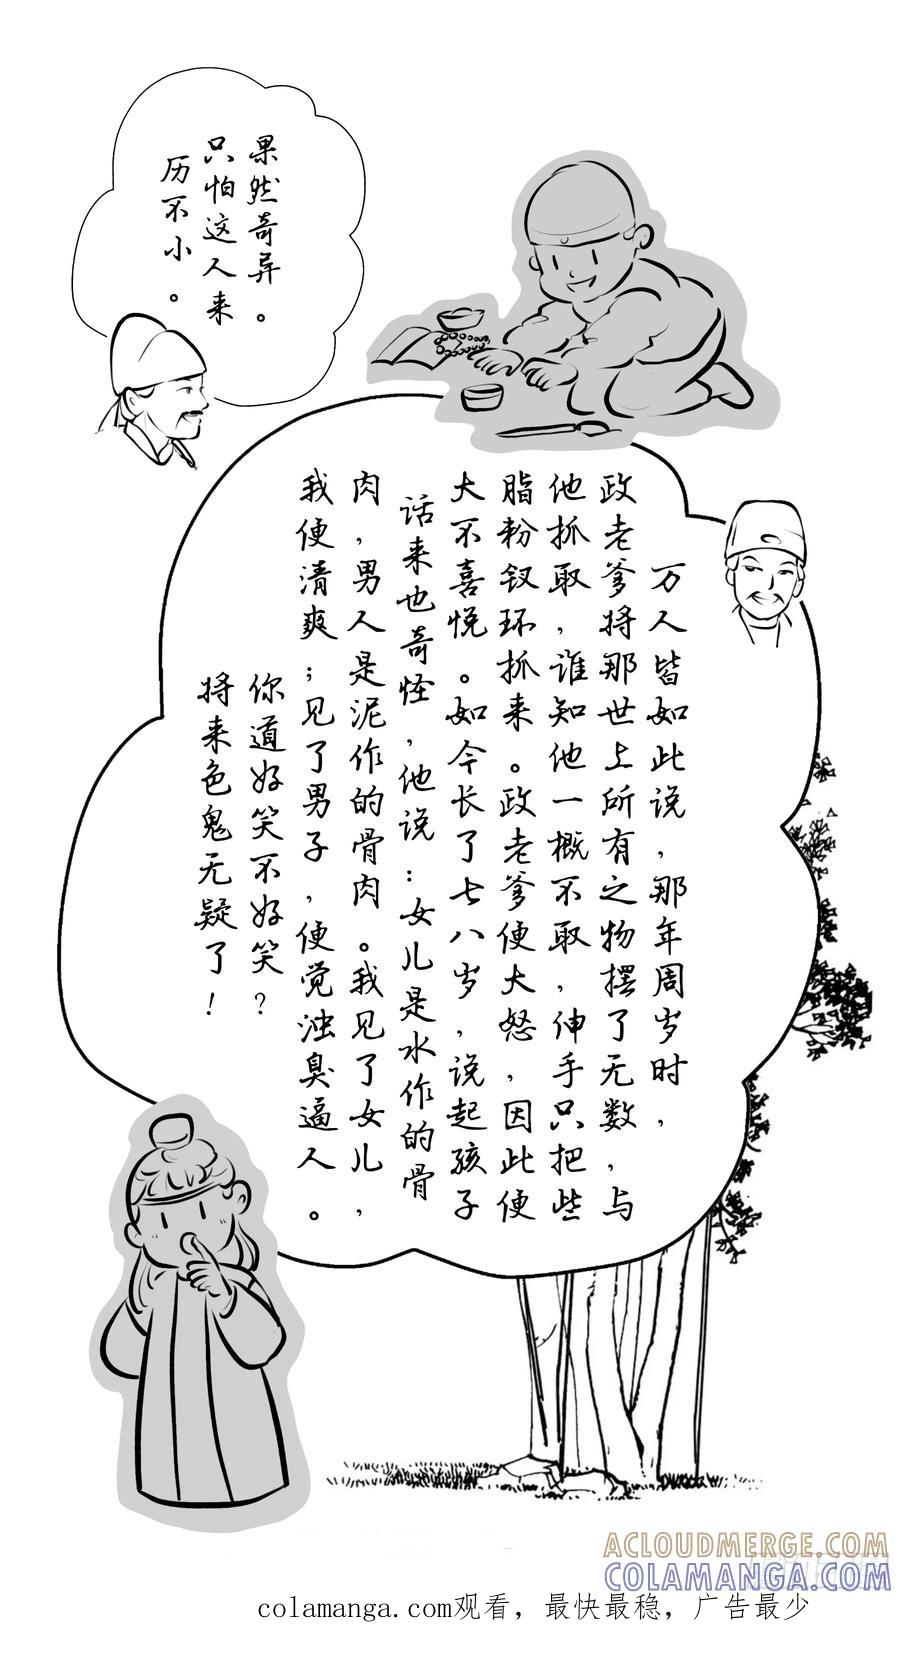 果然奇异。
只怕这人来
历不小。
万人皆如此说，那年周岁时，
政老爹将那世上所有之物摆了无数，与
他抓取，谁知他一概不取，伸手只把些
脂粉钗环抓来。政老爹便大怒，因此便
大不喜悦。如今长了七八岁，说起孩子
话来也奇怪，他说：女儿是水作的骨
肉，男人是泥作的骨肉。我见了女儿，
我便清爽；见了男子，便觉浊臭逼人。
你道好笑不好笑？
将来色鬼无疑了！
ACLOUDMERGE.COM
COLAMANGA.COM
colamanga.com观看，最快最稳，广告最少